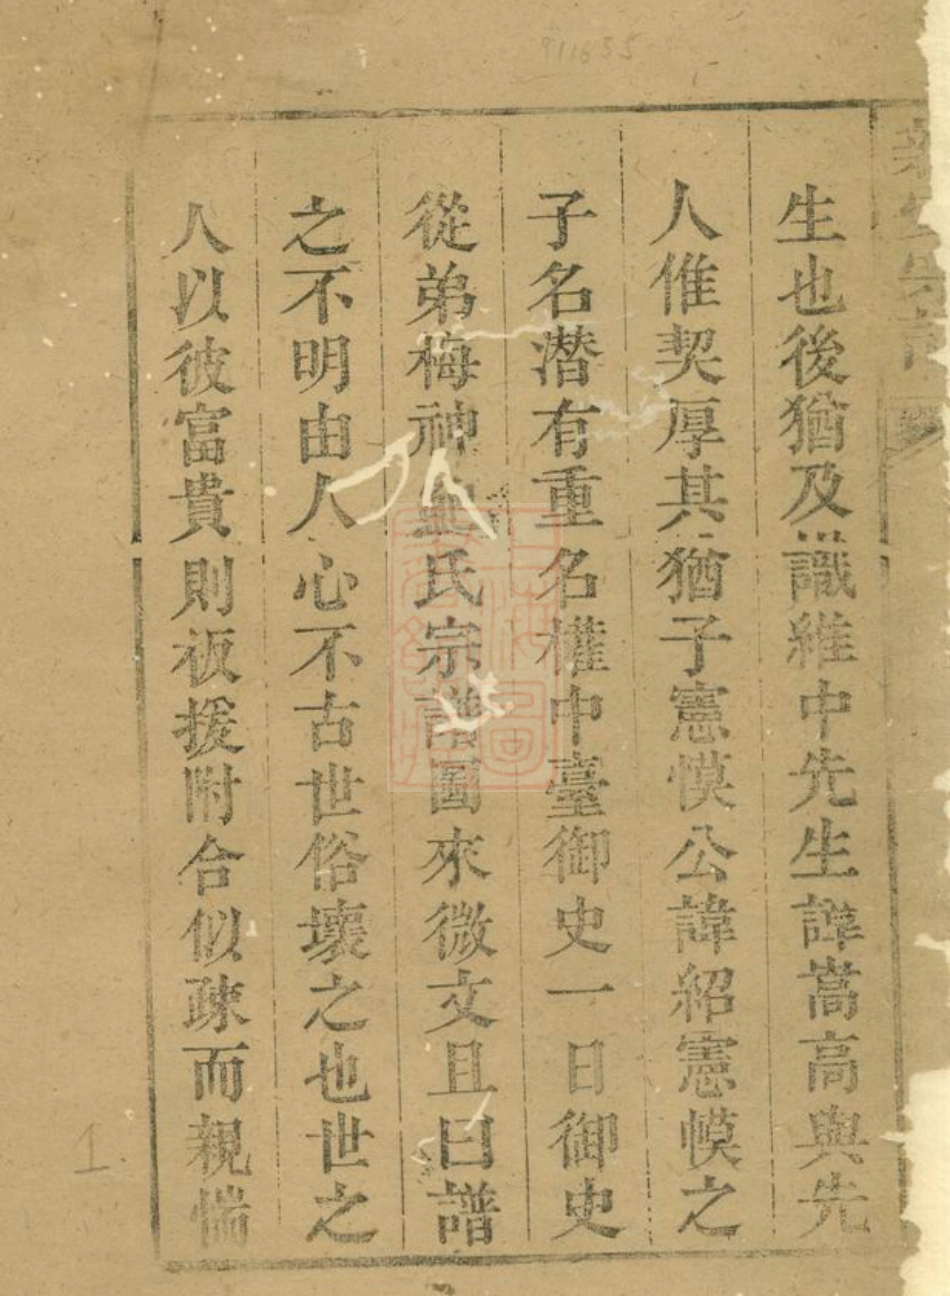 生也後猶及識維中先生諱嵩高與先
人惟契厚其猶子憲慔公諱紹憲慔之
子名潜有重名權中臺御史一日御史
從弟梅神 氏宗譜圖來微文且曰譜
之不明由人心不古世俗壞之也世之
人以彼富貴則扳援附合似疎而親惴
1